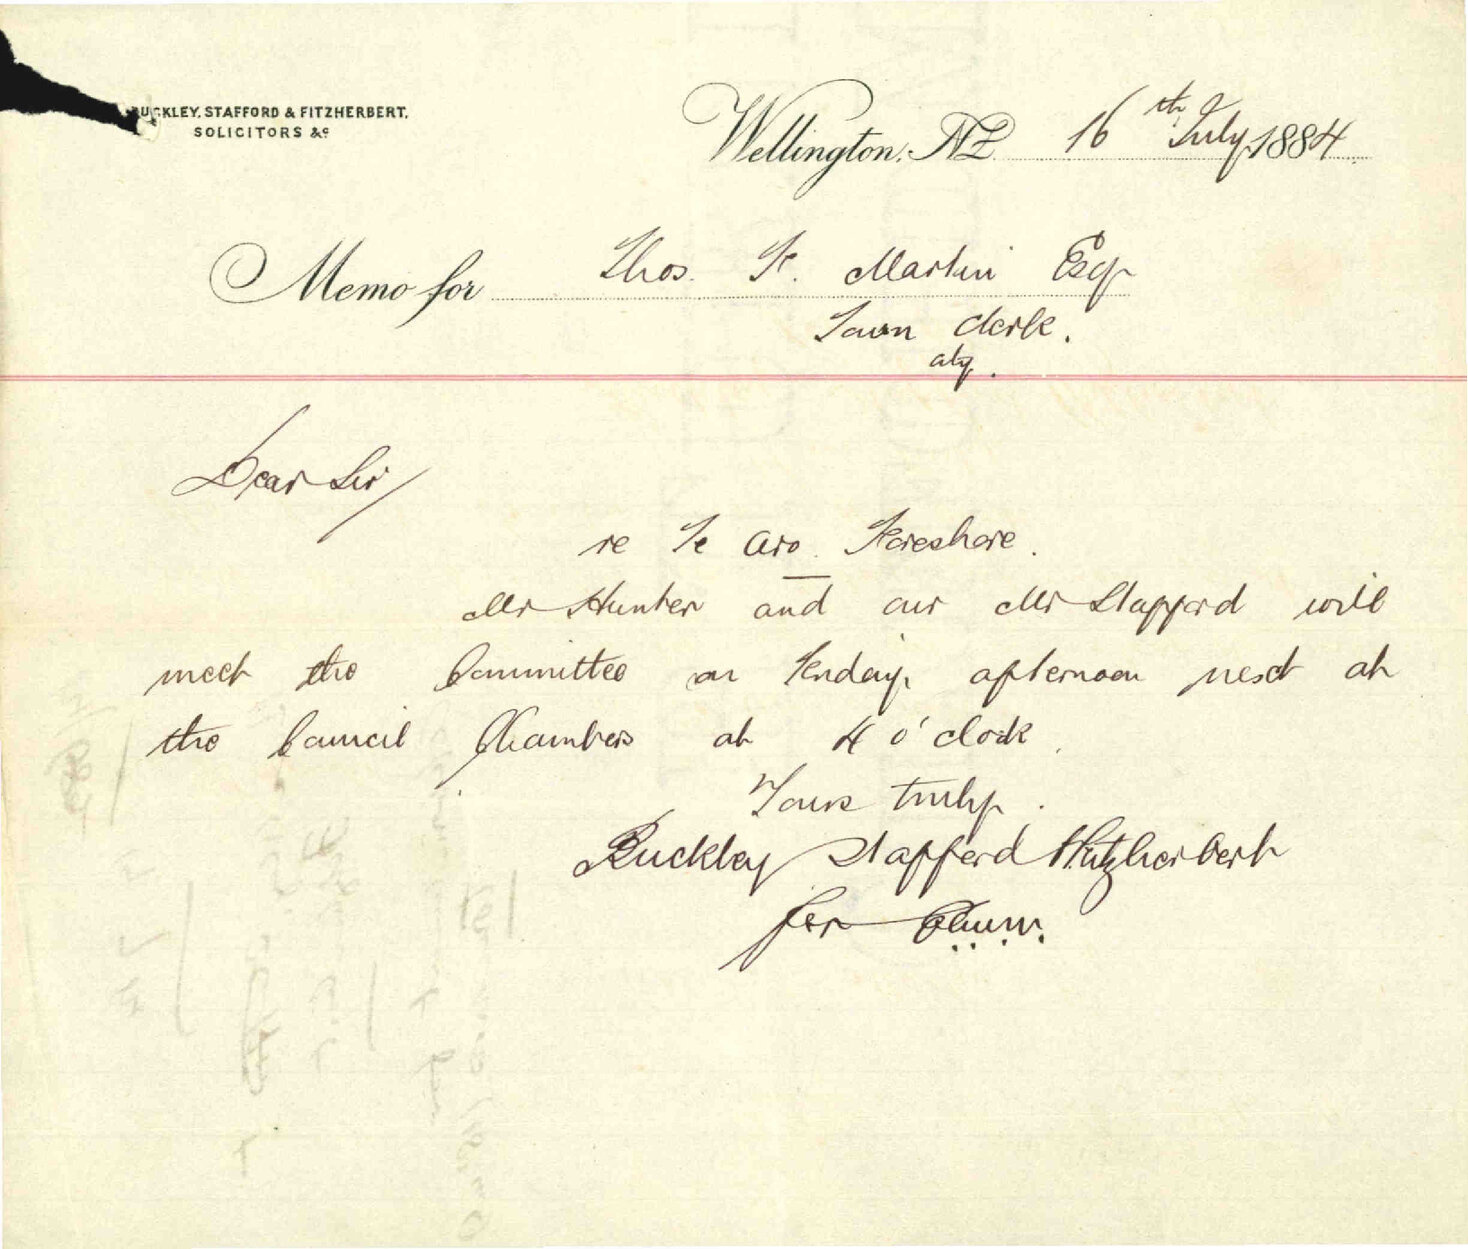 BUCKLEY, STAFFORD & FITZHERBERT,
SOLICITORS &c
Wellington, NZ 16th July 1884
Memo for Thos. F. Martin Esq
Town Clerk.
city.
Dear Sir
re Te Aro Foreshore.
Mr Hunter and our Mr Stafford will
meet the Committee on Friday afternoon next at
the Council Chambers at 4 o'clock.
Yours truly.
Buckley Stafford Fitzherbert
for